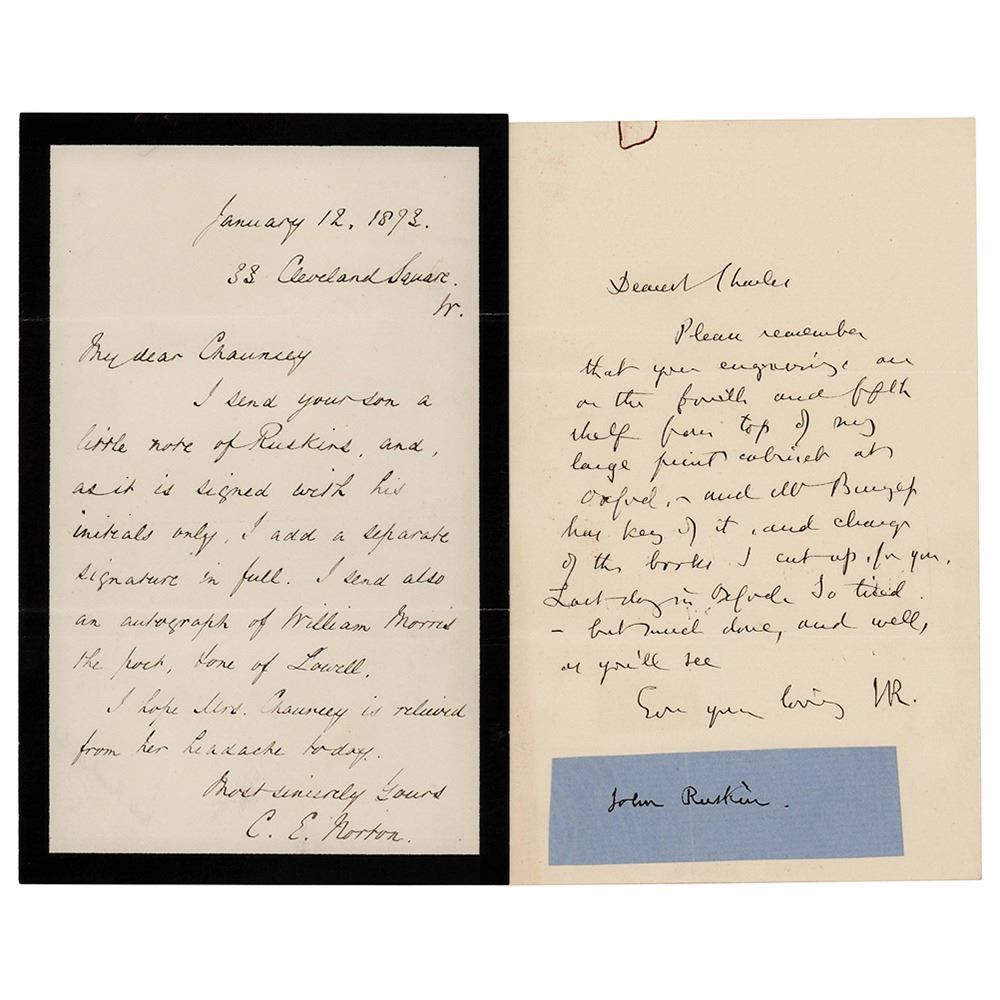 January 12, 1873.
33 Cleveland Square.
W.
My dear Chauncey
I send your son a
little note of Ruskins, and,
as it is signed with his
initials only, I add a separate
signature in full. I send also
an autograph of William Morris
the poet, & one of Lowell.
I hope Mrs. Chauncey is relieved
from her headache today.
Most sincerely Yours
C. E. Norton.
Dearest Charles
Please remember
that your engravings are
on the fourth and fifth
shelf from top of my
large print cabinet at
Oxford, - and Mr
has key of it, and charge
of the books I cut up, for you.
Last day in Oxford. So tired
- but much done, and well,
as you'll see
Ever your loving JR.
John Ruskin.